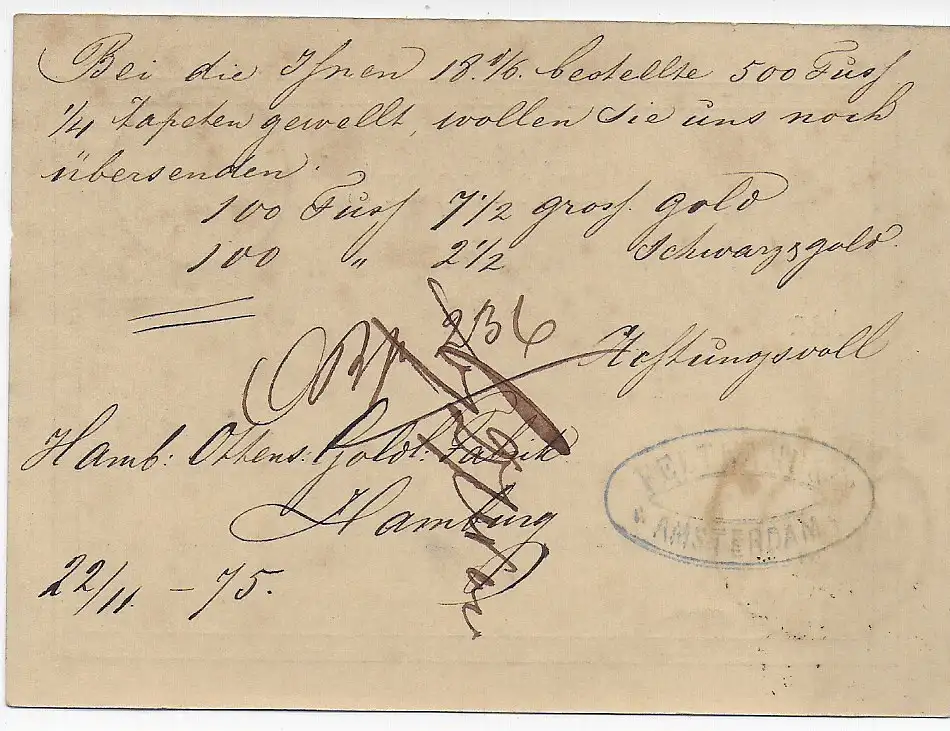 Bei die Ihnen bestellte 500 Fuss
1/4 Tapeten gewellt, wollen Sie uns noch
übersenden.
100 Fuss 7 1/2 gross. gold
100 " 2 1/2 Schwarz & gold.
236
Achtungsvoll
Hamb: Ottens. Goldl: Fabrik
Hamburg
AMSTERDAM
22/11. - 75.